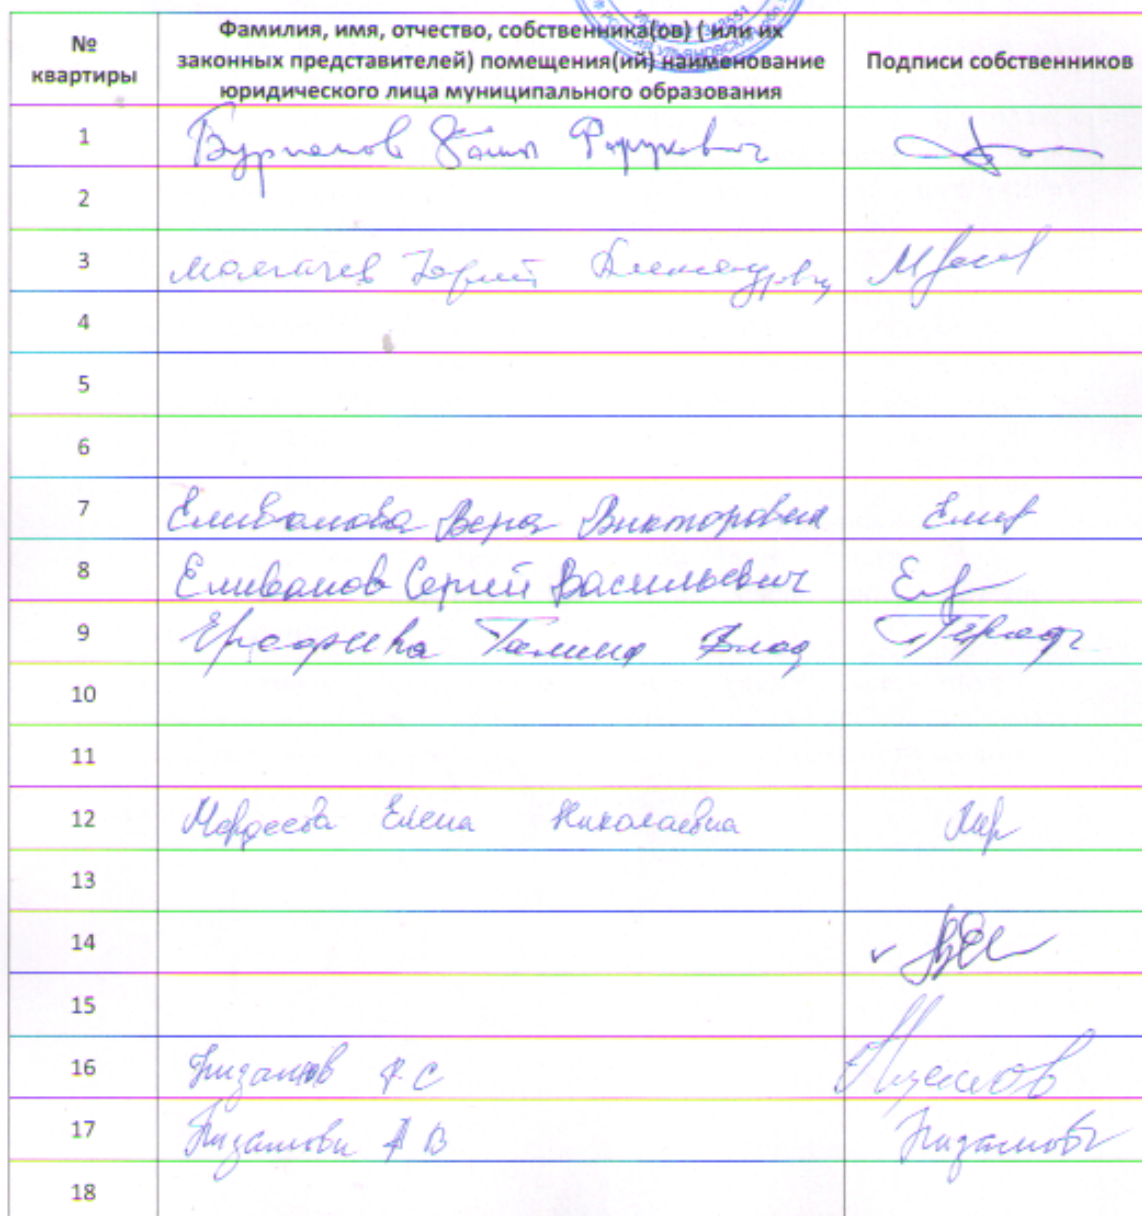 № квартиры
Фамилия, имя, отчество, собственника(ов) ( или их
законных представителей) помещения(ий) наименование
юридического лица муниципального образования
Подписи собственников
1 Бурханов Фарукович
2
3 Молгачев Юрий Александрович
4
5
6
7 Еливанова Вера Викторовна
8 Еливанов Сергей Васильевич
9 Ерофеева Галина Влад
10
11
12 Елена Николаевна
13
14
15
16 Низамов Р.С
17 Низамова В
18